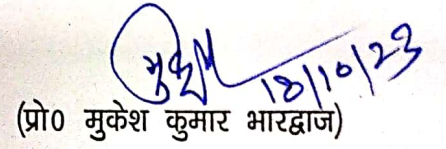 18/10/23
(प्रो0 मुकेश कुमार भारद्वाज)